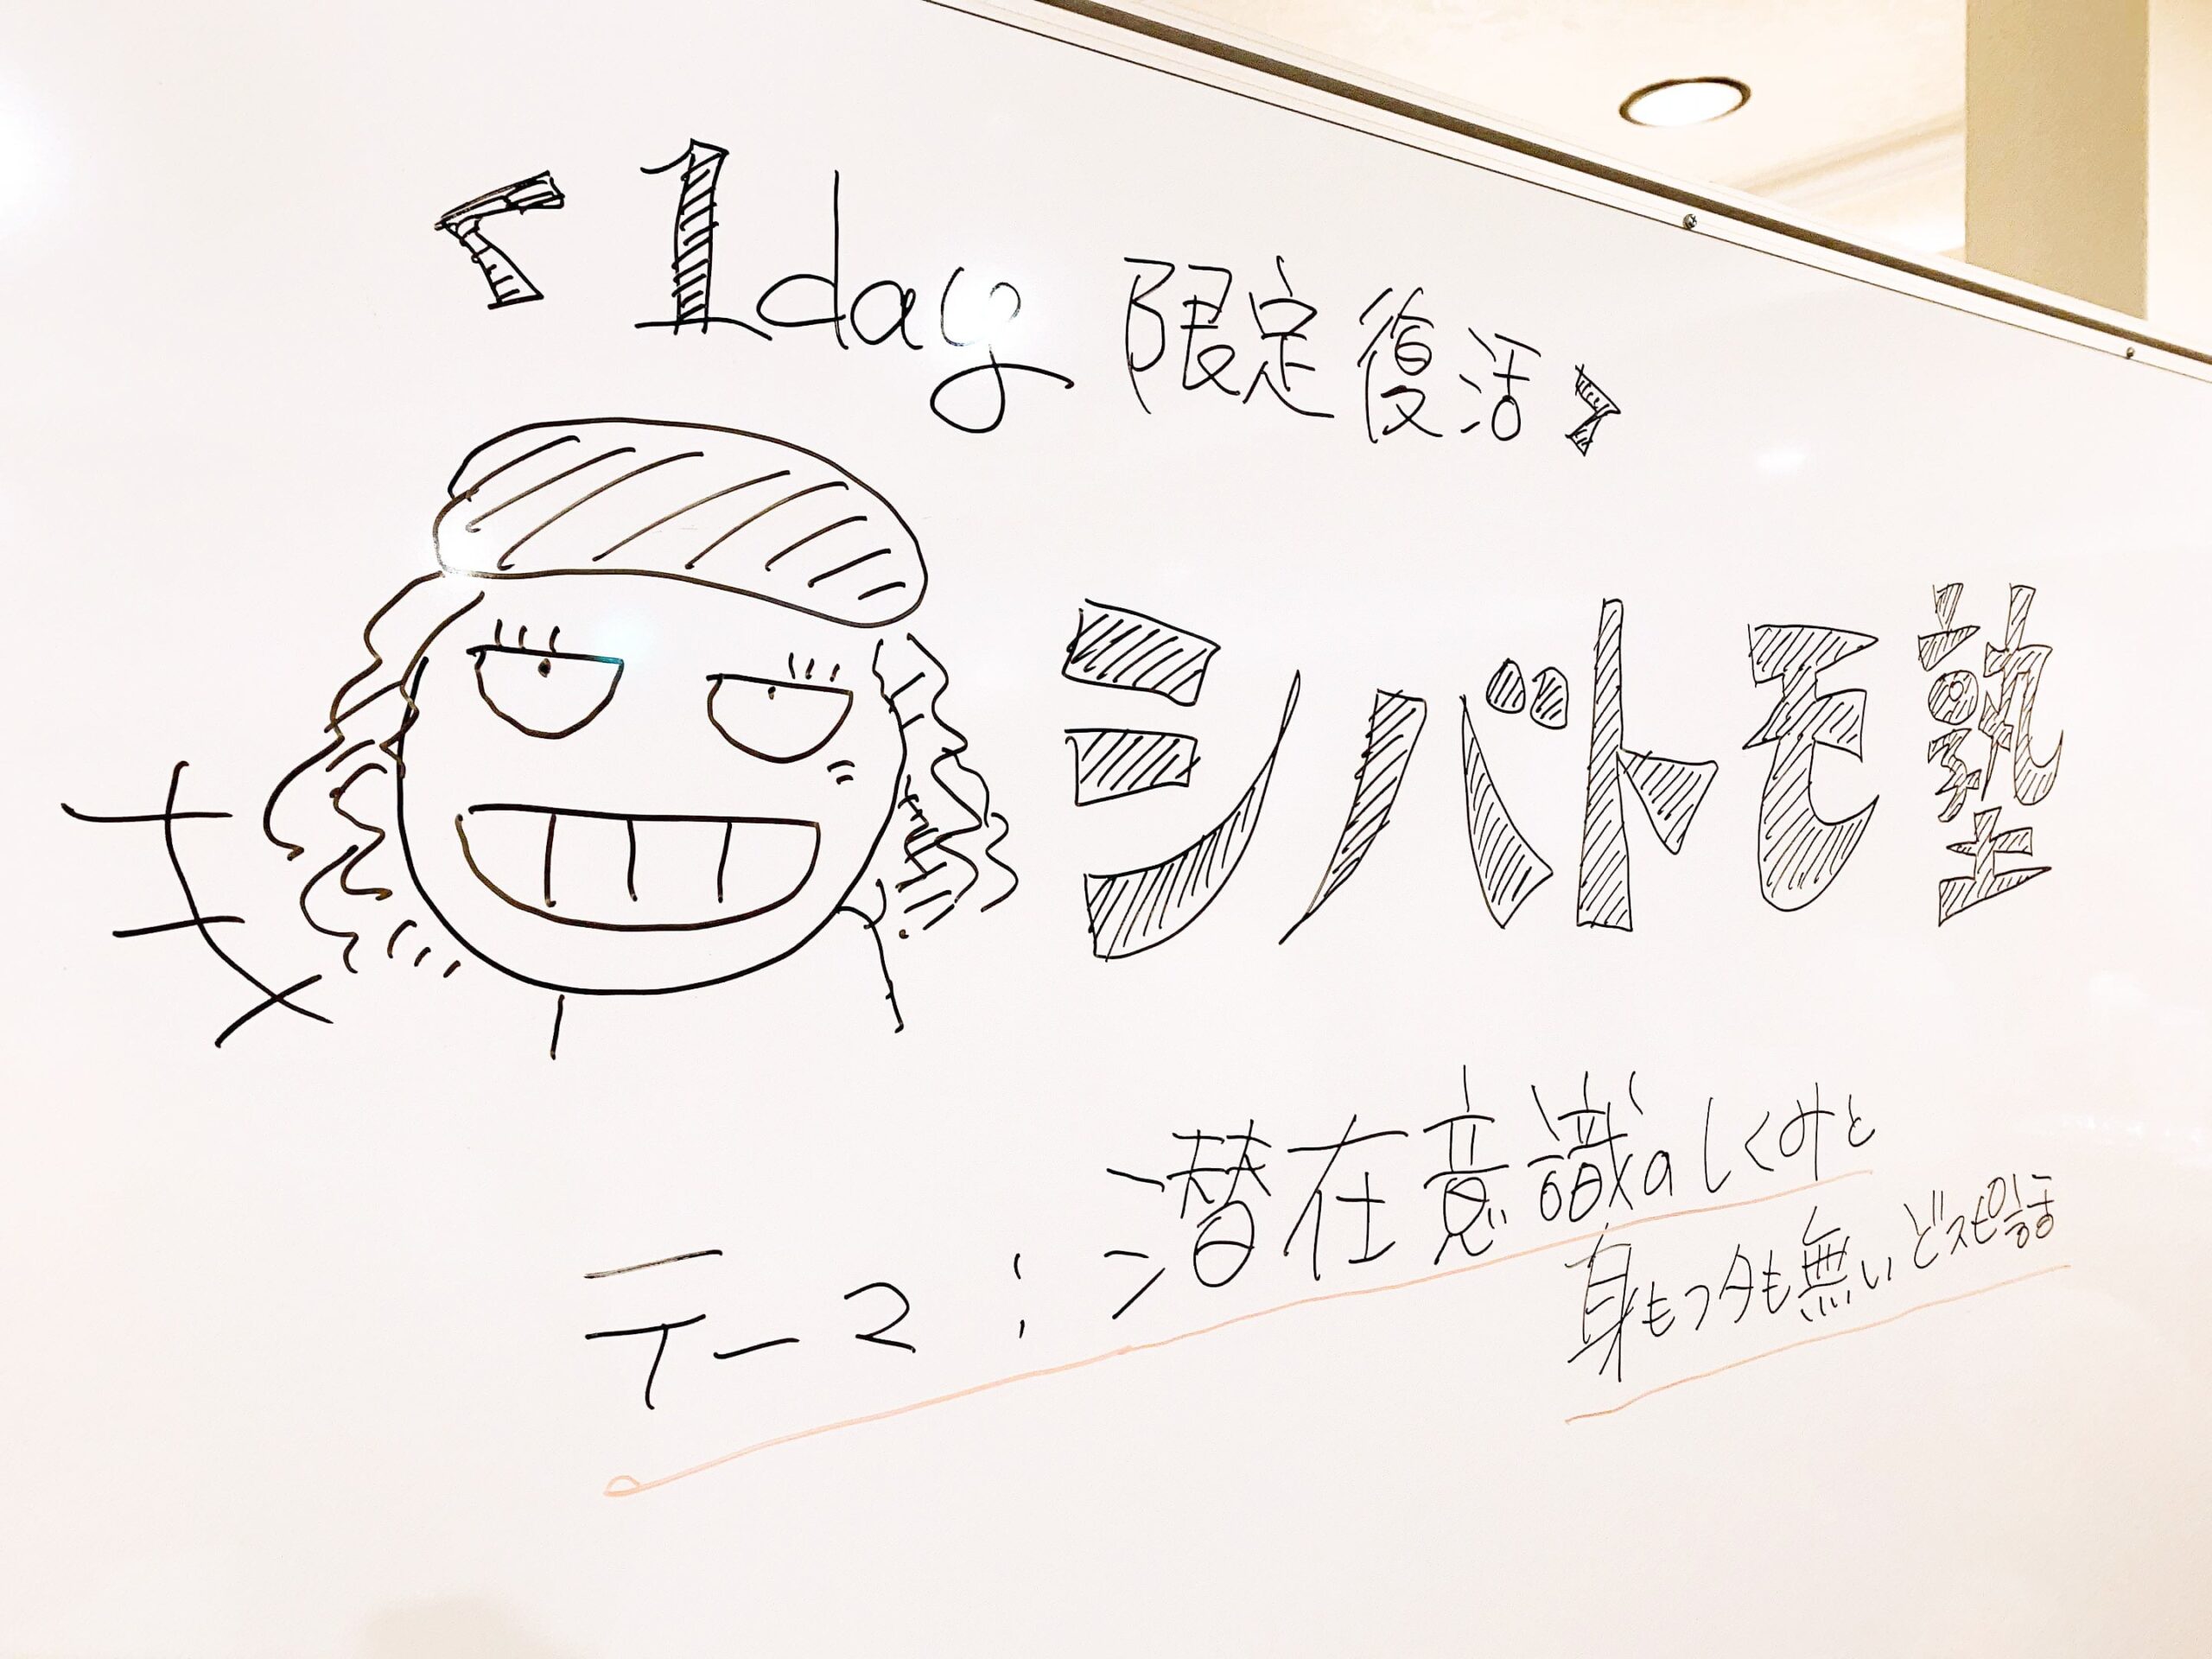 <1day限定復活>
シバトモ塾
テーマ:潜在意識のしくみと
身もフタも無いどスピ話